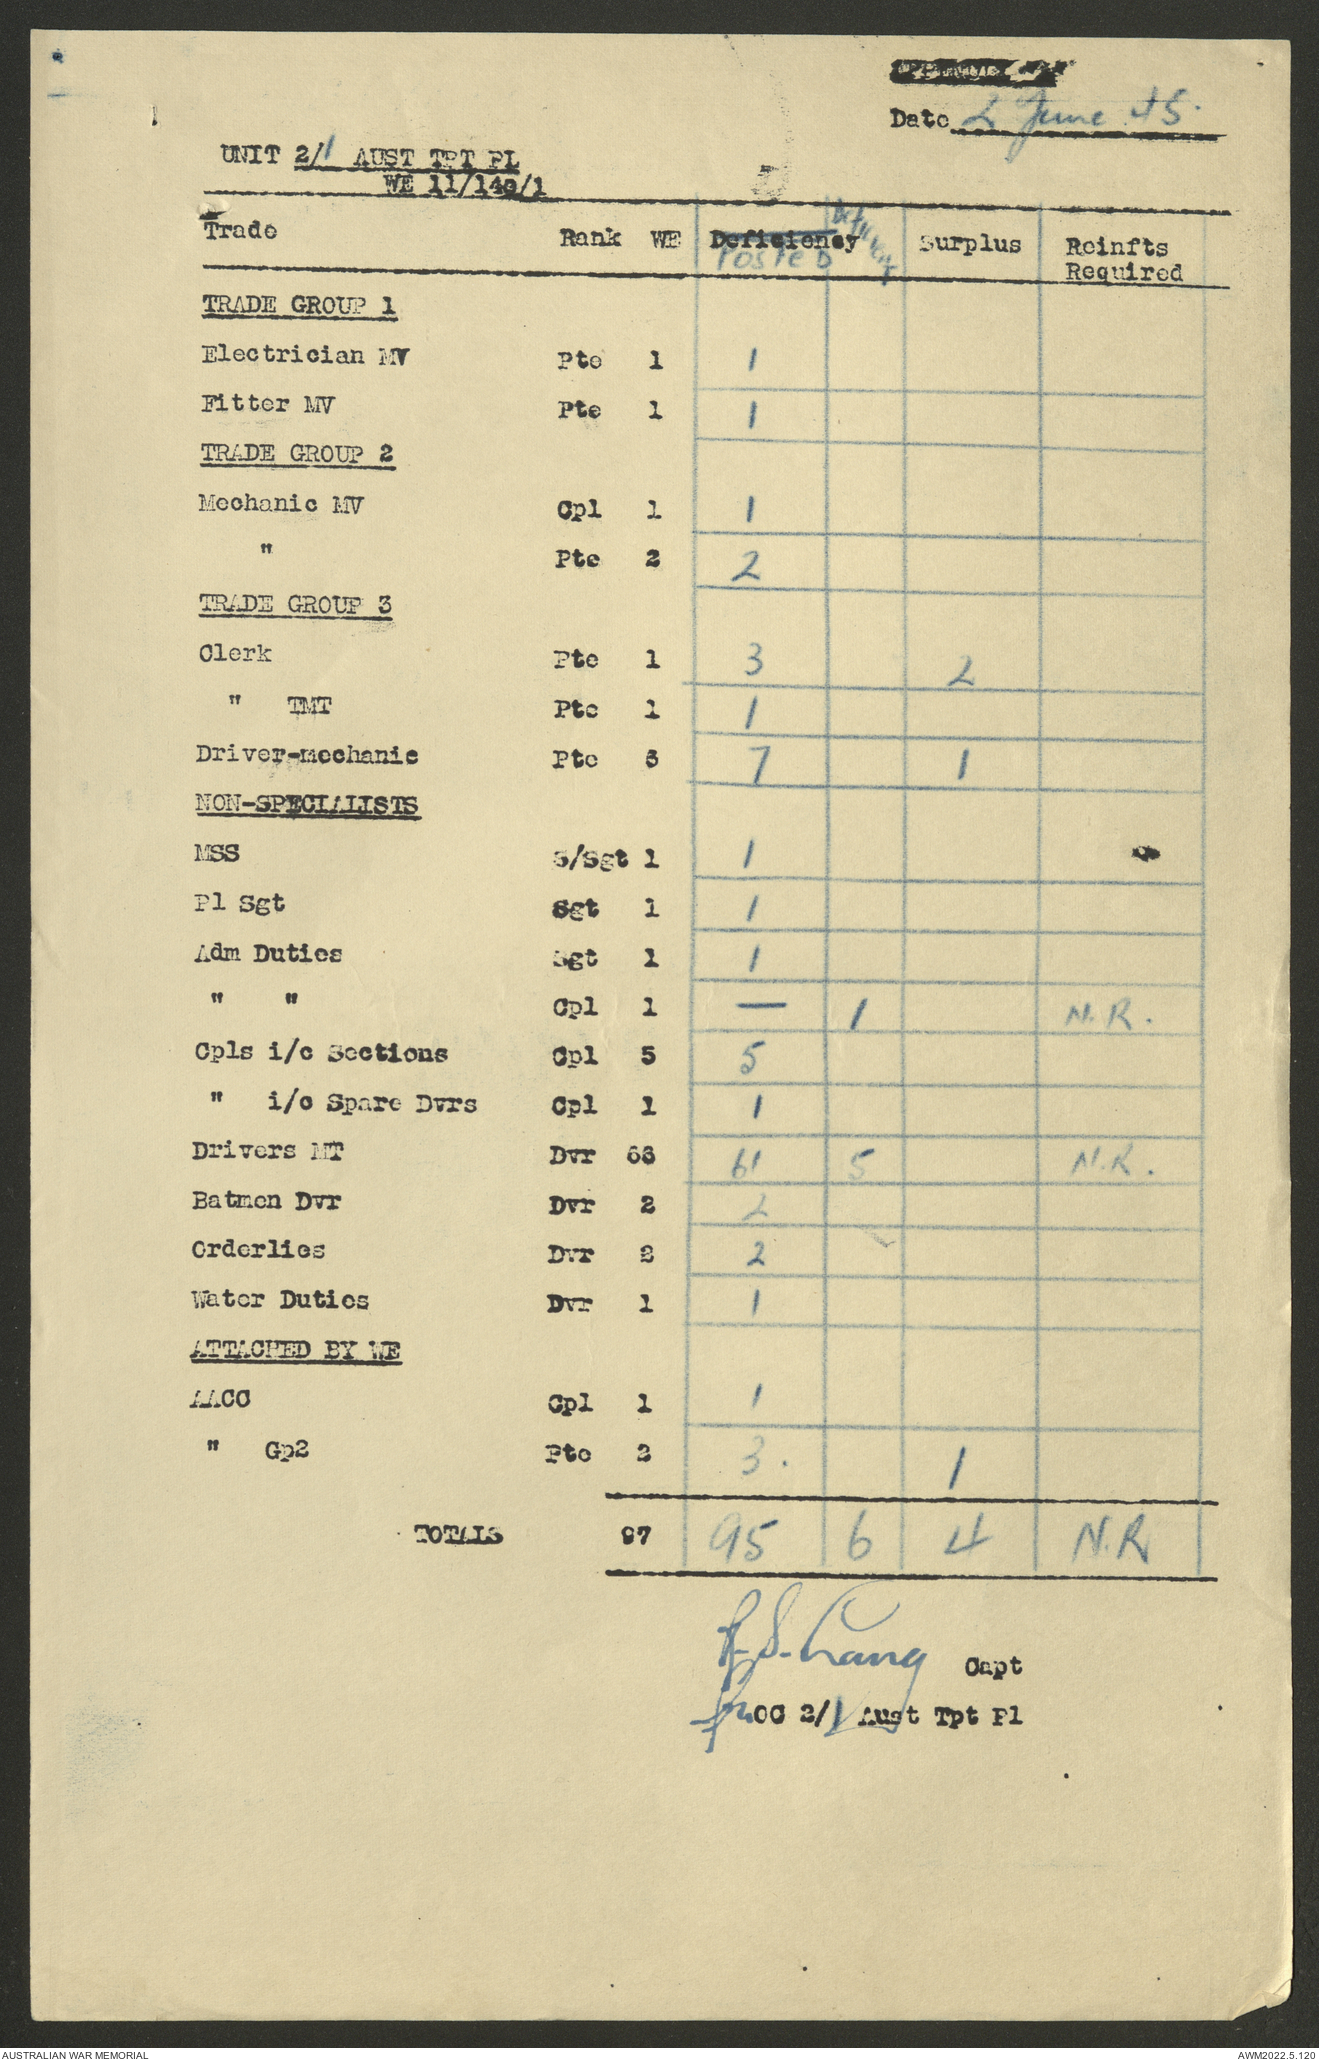 Date 2 June 45.
UNIT 2/1 AUST TPT PL
WE 11/140/1
Trade Rank WE Deficiency POSTED Deficiency Surplus Reinfts Required
TRADE GROUP 1
Electrician MV Pte 1 1
Fitter MV Pte 1 1
TRADE GROUP 2
Mechanic MV Cpl 1 1
" Pte 2 2
TRADE GROUP 3
Clerk Pte 1 3 2
" TMT Pte 1 1
Driver-mechanic Pte 6 7 1
NON-SPECIALISTS
MSS S/Sgt 1 1
Pl Sgt Sgt 1 1
Adm Duties Sgt 1 1
" " Cpl 1 — 1 N.R.
Cpls i/c Sections Cpl 5 5
" i/c Spare Dvrs Cpl 1 1
Drivers MT Dvr 66 61 5 N.R.
Batmen Dvr Dvr 2 2
Orderlies Dvr 2 2
Water Duties Dvr 1 1
ATTACHED BY WE
AACC Cpl 1 1
" Gp2 Pte 2 3. 1
TOTALS 97 95 6 4 N.R
Capt
for OC 2/1 Aust Tpt Pl
AUSTRALIAN WAR MEMORIAL AWM2022.5.120